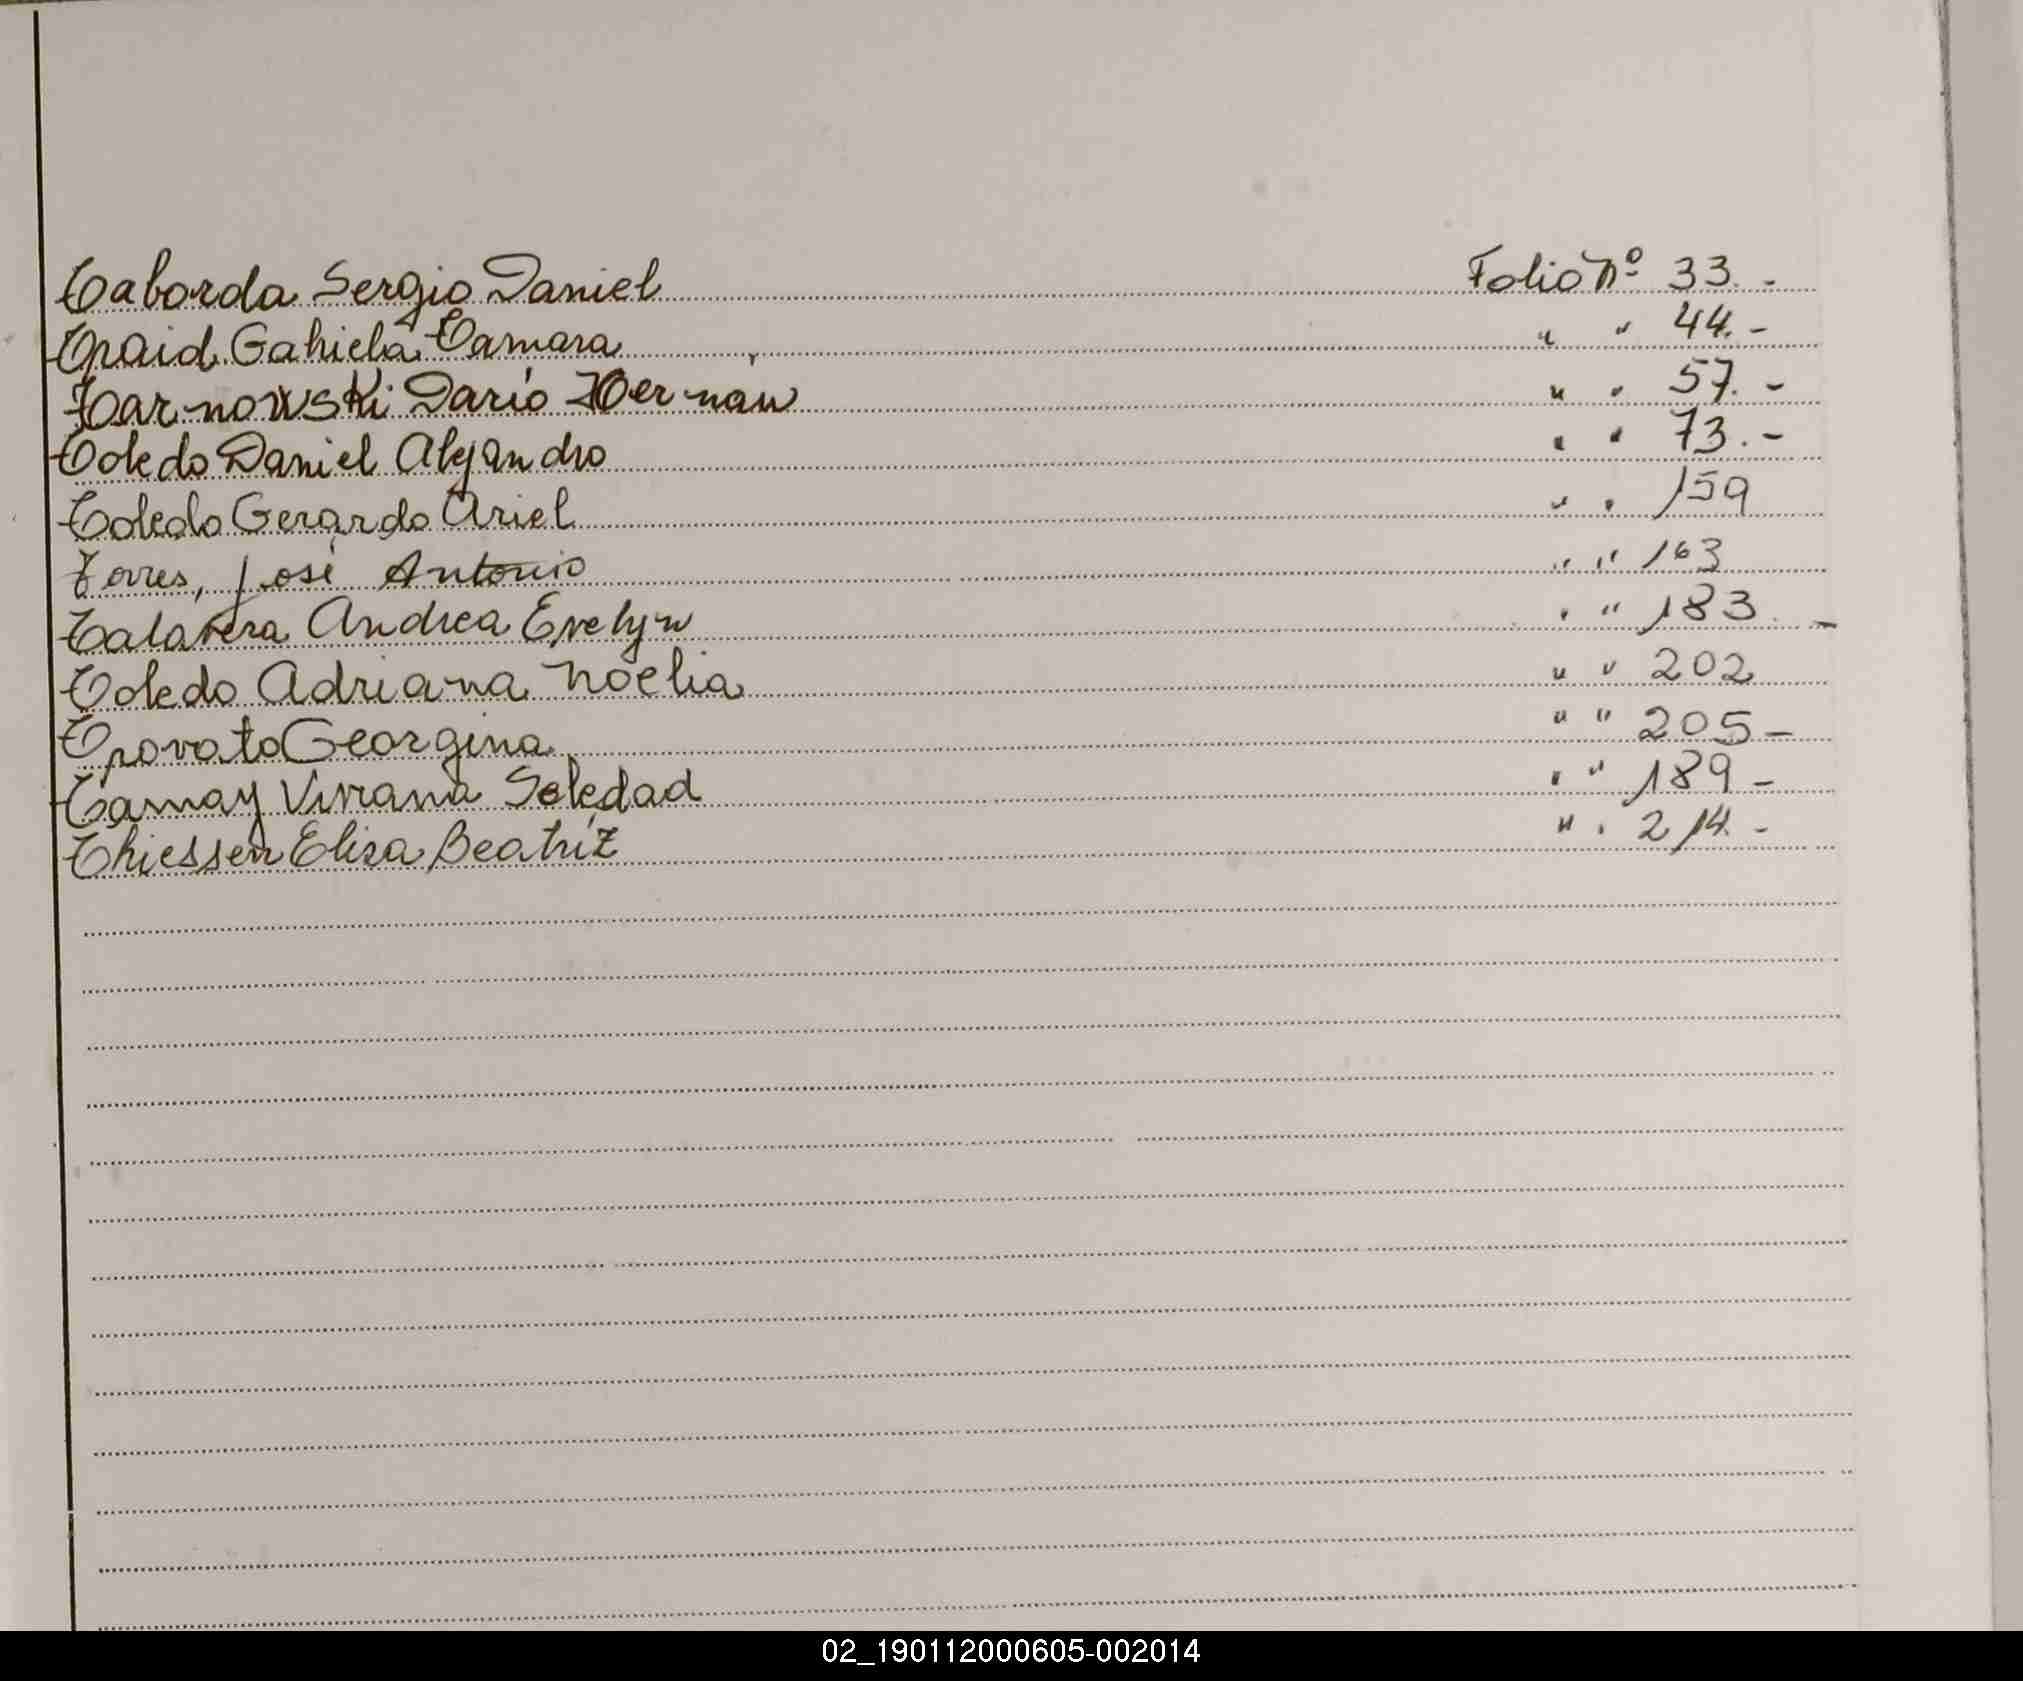 Taborda Sergio Daniel Folio Nº 33.-
Traid Gabriela Tamara " " 44.-
Tarnowski Darío Hernán " " 57.-
Toledo Daniel Alejandro " " 73.-
Toledo Gerardo Ariel " " 159
Torres, José Antonio " " 163
Talavera Andrea Evelyn " " 183.-
Toledo Adriana Noelia " " 202
Trovato Georgina " " 205-
Tamay Viviana Soledad " " 189-
Thiessen Elisa Beatríz " " 214.-
02_190112000605-002014